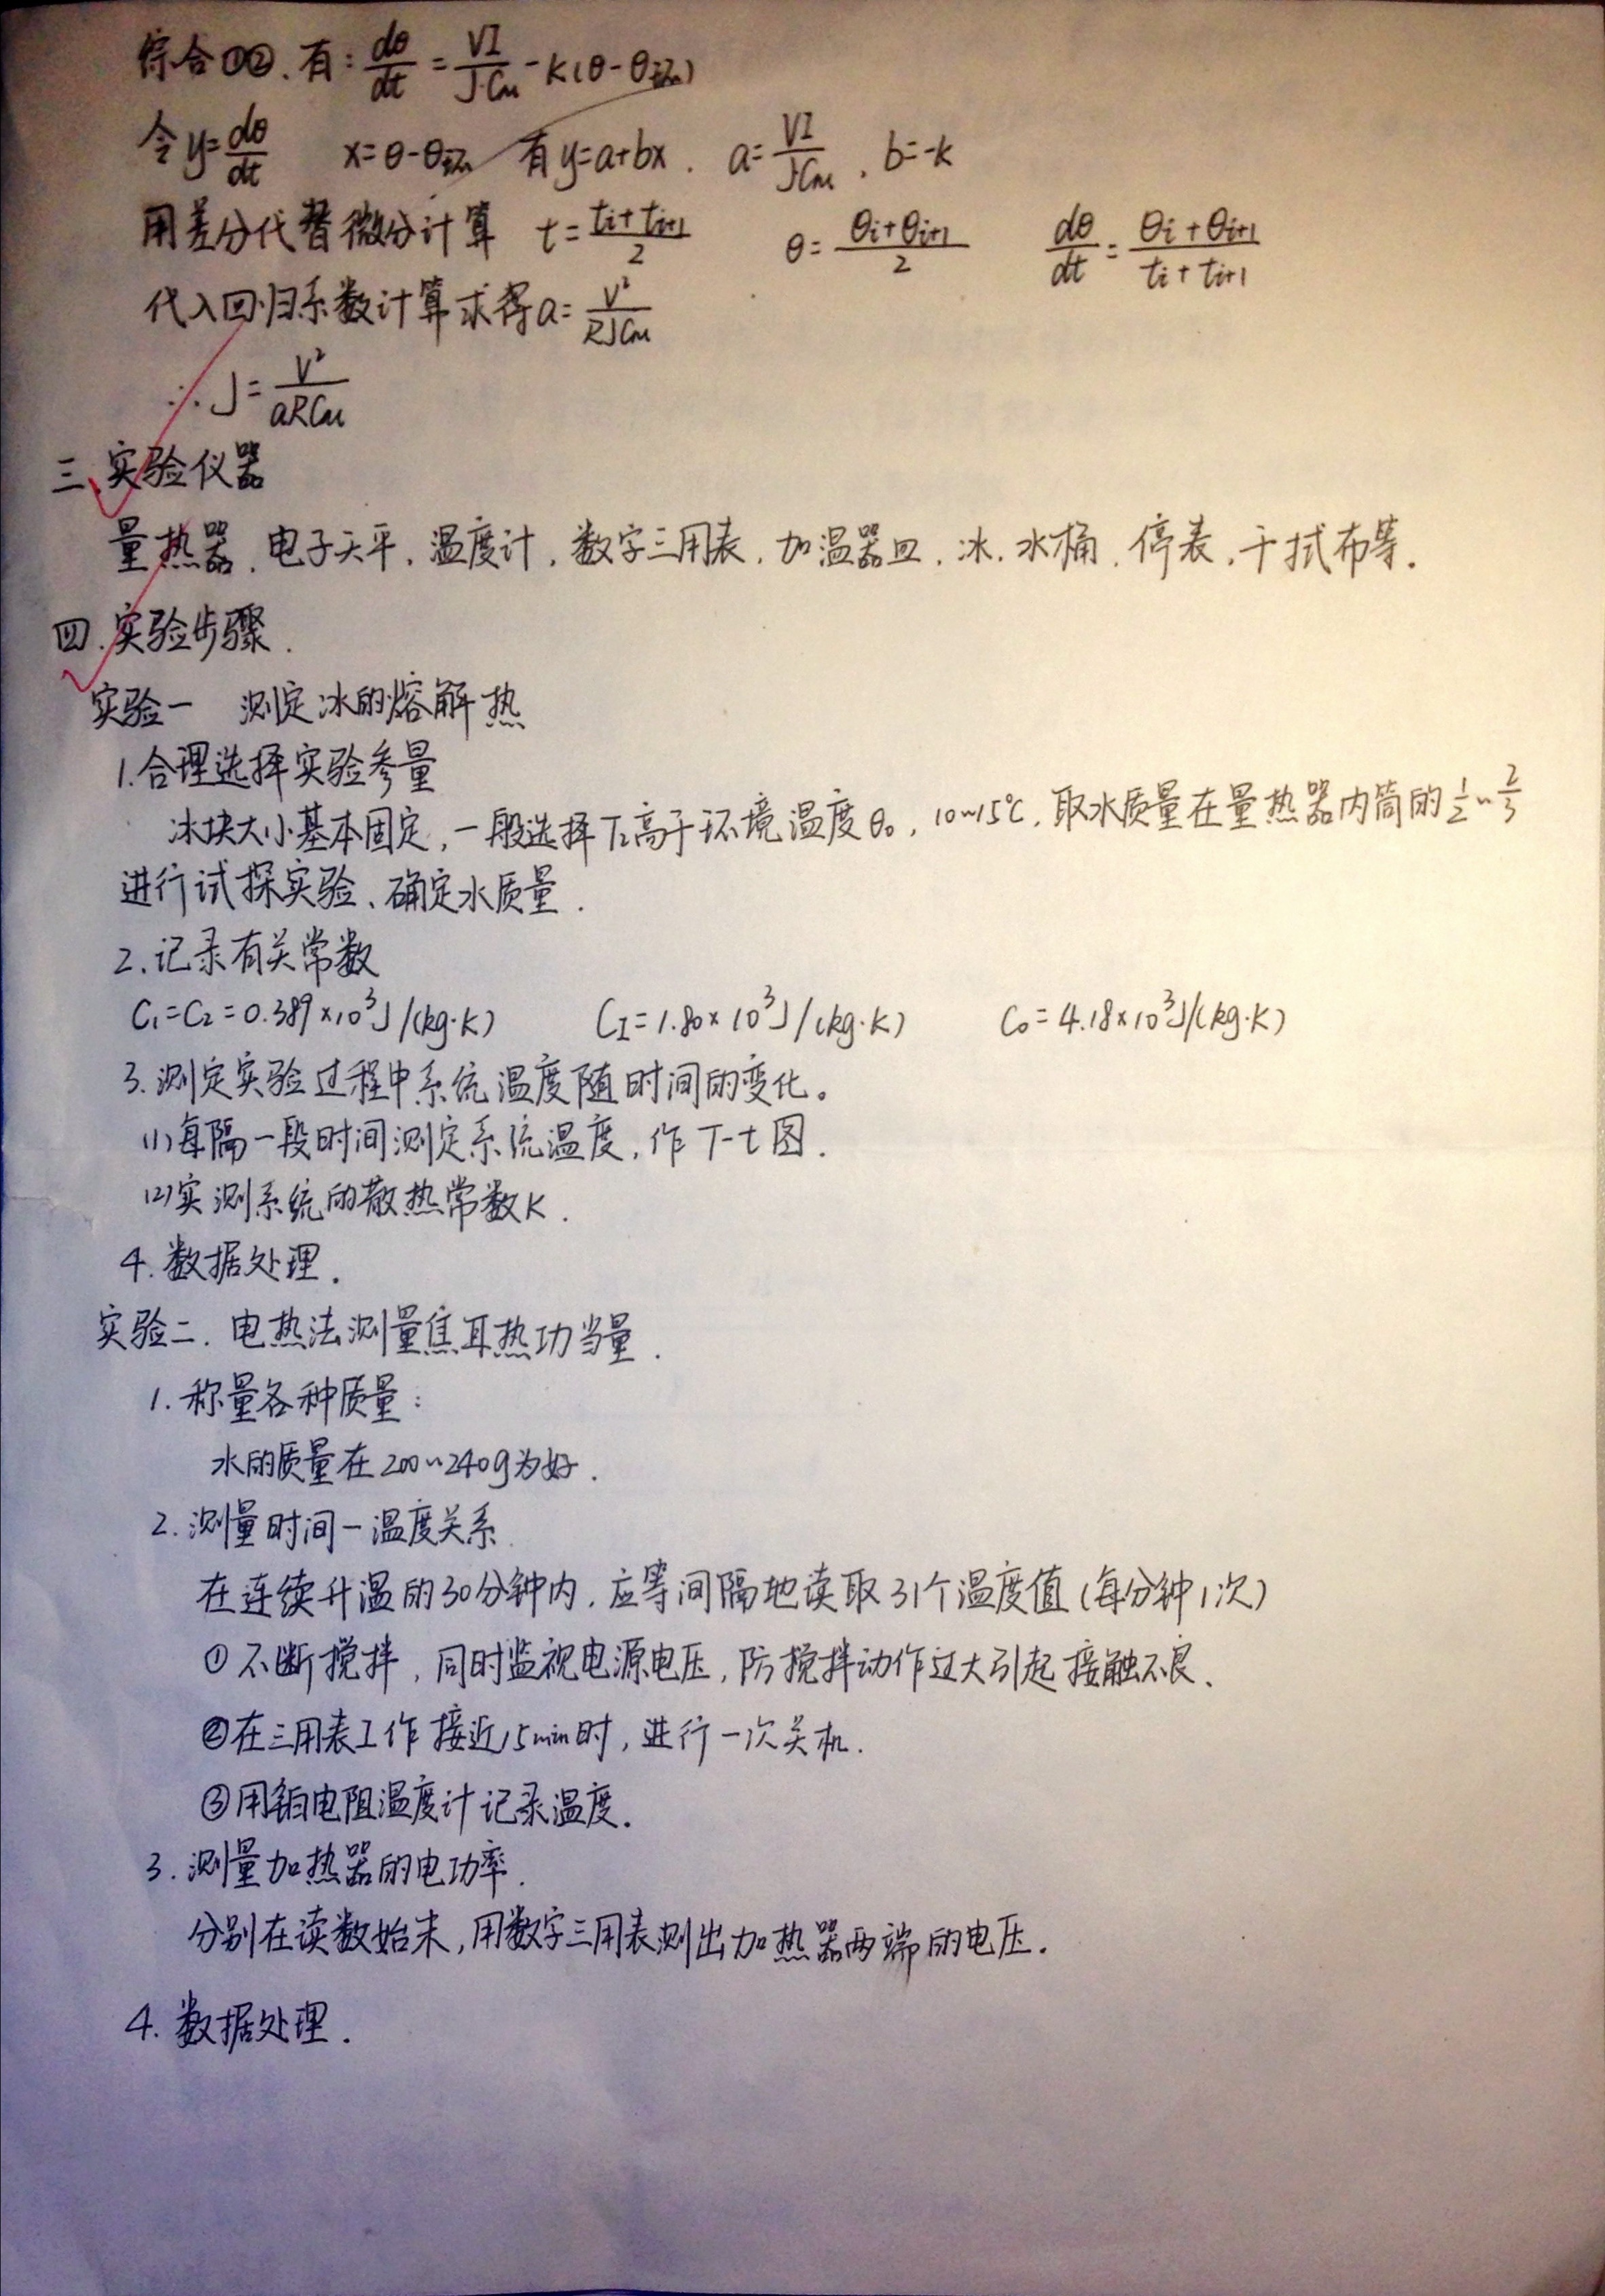 综合①②、有: dθ/dt = VI/(J·Cm) - K(θ-θ环)
令 y=dθ/dt x=θ-θ环 有y=a+bx. a=VI/(JCm), b=-k
用差分代替微分计算 t=(ti+ti+1)/2 θ=(θi+θi+1)/2 dθ/dt=(θi+θi+1)/(ti+ti+1)
代入回归系数计算求得a=V²/(RJCm)
∴J=V²/(aRCm)
三、实验仪器
量热器、电子天平、温度计,数字三用表,加温器皿,冰,水桶,停表,干拭布等.
四.实验步骤.
实验一 测定冰的熔解热
1.合理选择实验参量
冰块大小基本固定,一般选择T2高于环境温度θ0,10~15℃,取水质量在量热器内筒的1/2~2/3
进行试探实验、确定水质量.
2.记录有关常数
C1=C2=0.389×10³J/(kg·K) CI=1.80×10³J/(kg·K) C0=4.18×10³J/(kg·K)
3.测定实验过程中系统温度随时间的变化。
(1)每隔一段时间测定系统温度,作T-t图.
(2)实测系统的散热常数K.
4.数据处理.
实验二.电热法测量焦耳热功当量.
1.称量各种质量:
水的质量在200~240g为好.
2.测量时间-温度关系.
在连续升温的30分钟内,应等间隔地读取31个温度值(每分钟1次)
①不断搅拌,同时监视电源电压,防搅拌动作过大引起接触不良、
②在三用表工作接近15min时,进行一次关机.
③用铂电阻温度计记录温度.
3.测量加热器的电功率.
分别在读数始末,用数字三用表测出加热器两端的电压.
4.数据处理.